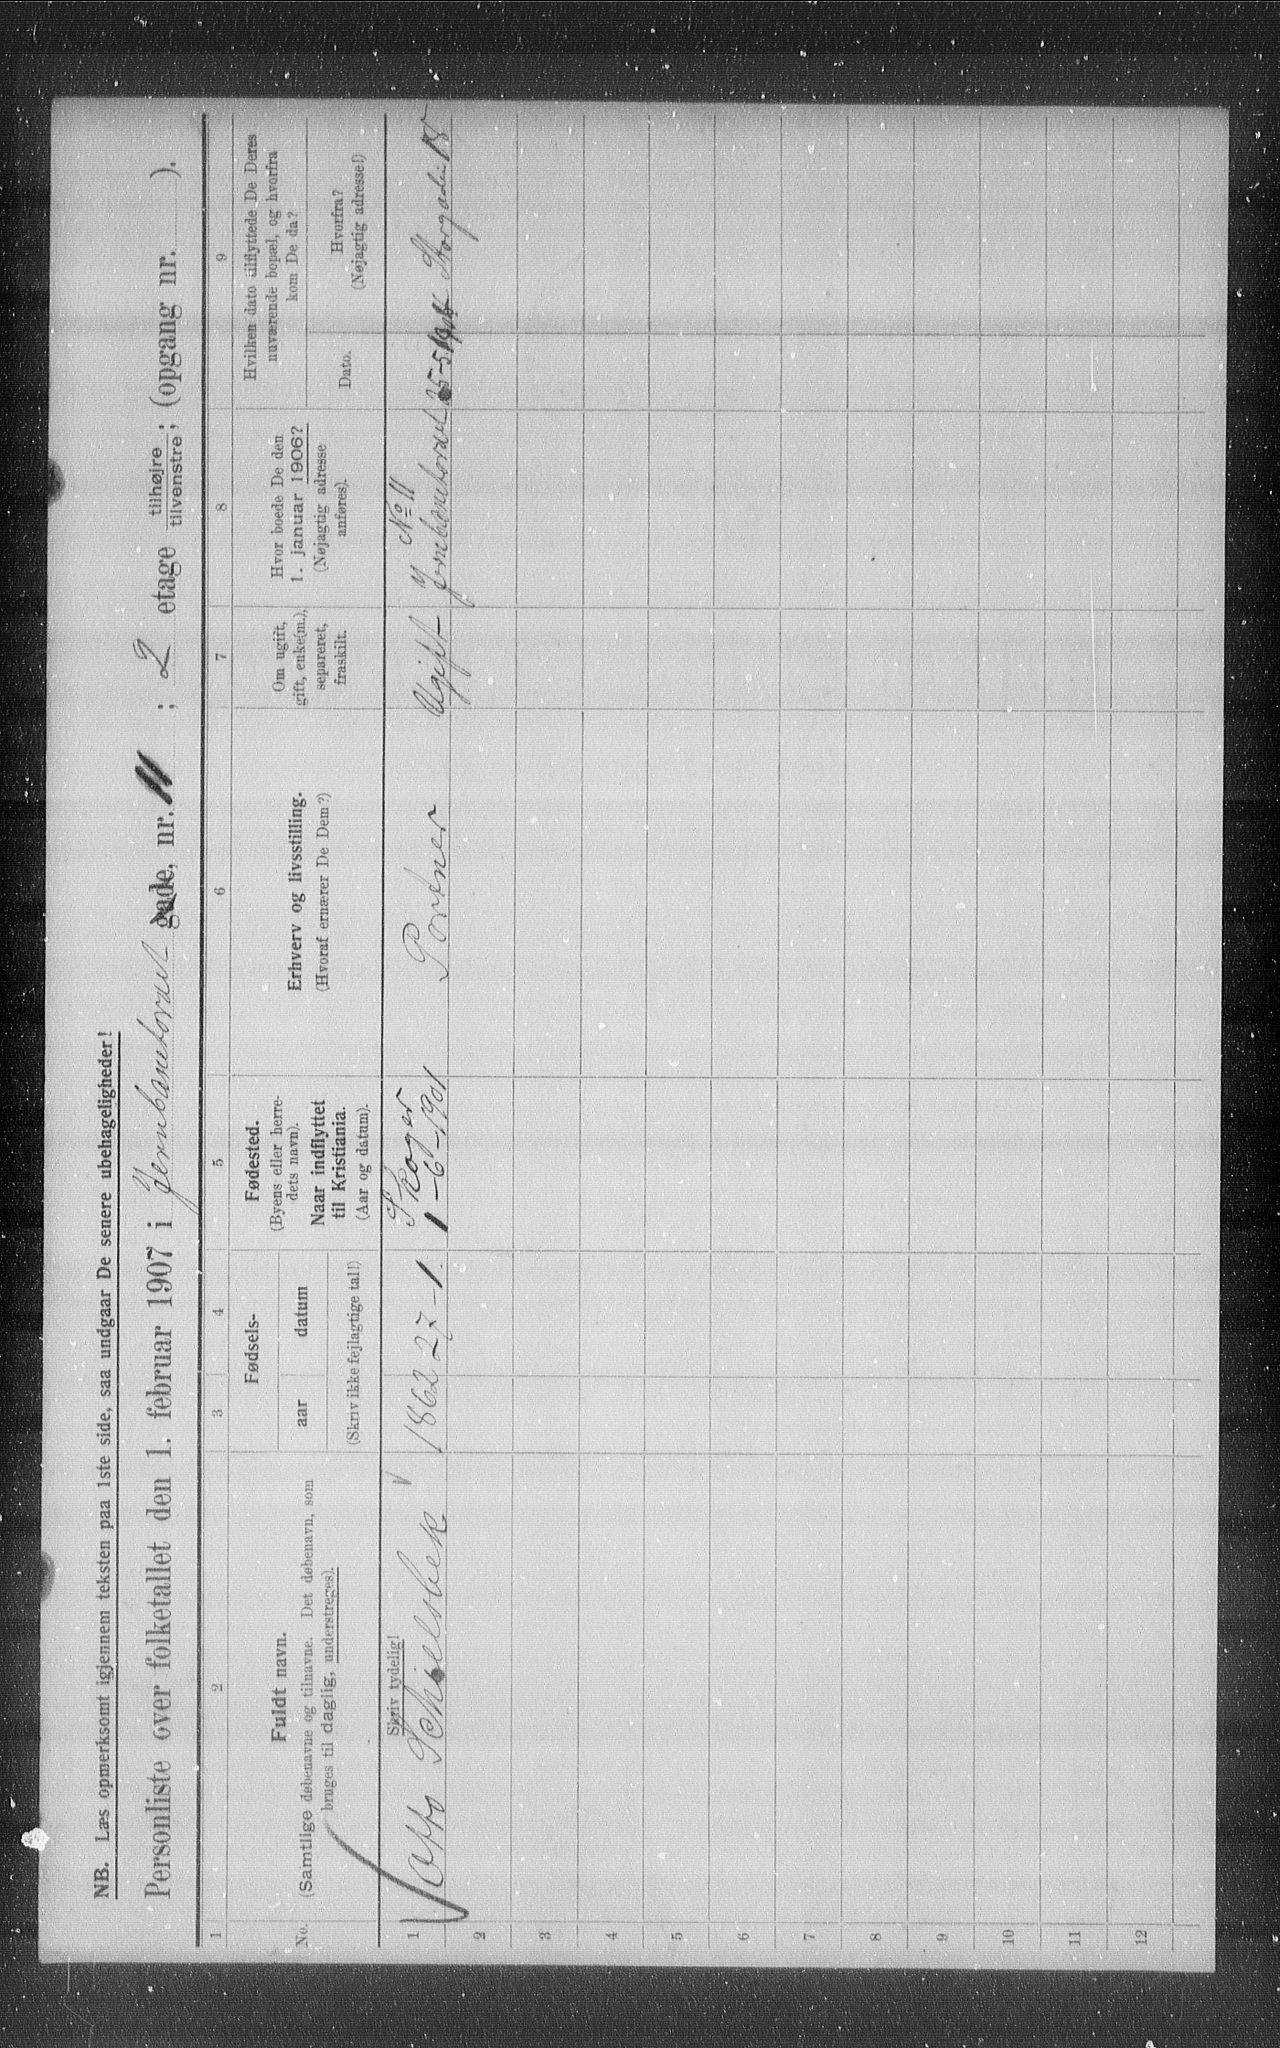 NB. Læs opmerksomt igjennem teksten paa 1ste side, saa undgaar De senere ubehageligheder!
Personliste over folketallet den 1. februar 1907 i Jernbanetorvet gade, nr. 11 ; 2 etage tilhøjre tilvenstre; (opgang nr. ).
1 2 3 4 5 6 7 8 9
No.
Fuldt navn.
(Samtlige døbenavne og tilnavne. Det døbenavn, som
bruges til daglig, understreges).
Fødsels-
aar datum
(Skriv ikke fejlagtige tal!)
Fødested.
(Byens eller herre-
dets navn).
Naar indflyttet
til Kristiania.
(Aar og datum).
Erhverv og livsstilling.
(Hvoraf ernærer De Dem?)
Om ugift,
gift, enke(m.),
separeret,
fraskilt.
Hvor boede De den
1. januar 1906?
(Nøjagtig adresse
anføres).
Hvilken dato tilflyttede De Deres
nuværende bopæl, og hvorfra
kom De da?
Dato.
Hvorfra?
(Nøjagtig adresse!)
Skriv tydelig!
1 Otto Schielsbek 1862 27-1. Skoger
1-6-1901 Portner Ugift No 11
Jernbanetorvet 25-5 Storgaden 15
2
3
4
5
6
7
8
9
10
11
12